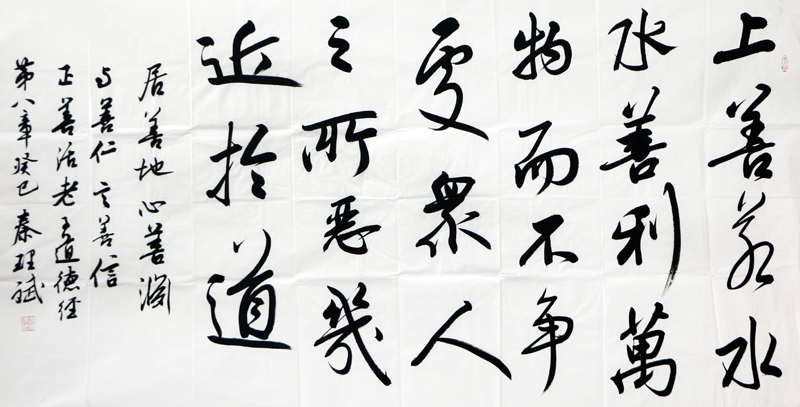 上善若水
水善利萬
物而不争
處眾人
之所惡幾
近於道
居善地心善淵
与善仁言善信
正善治老子道德經
第八章癸巳秦理斌